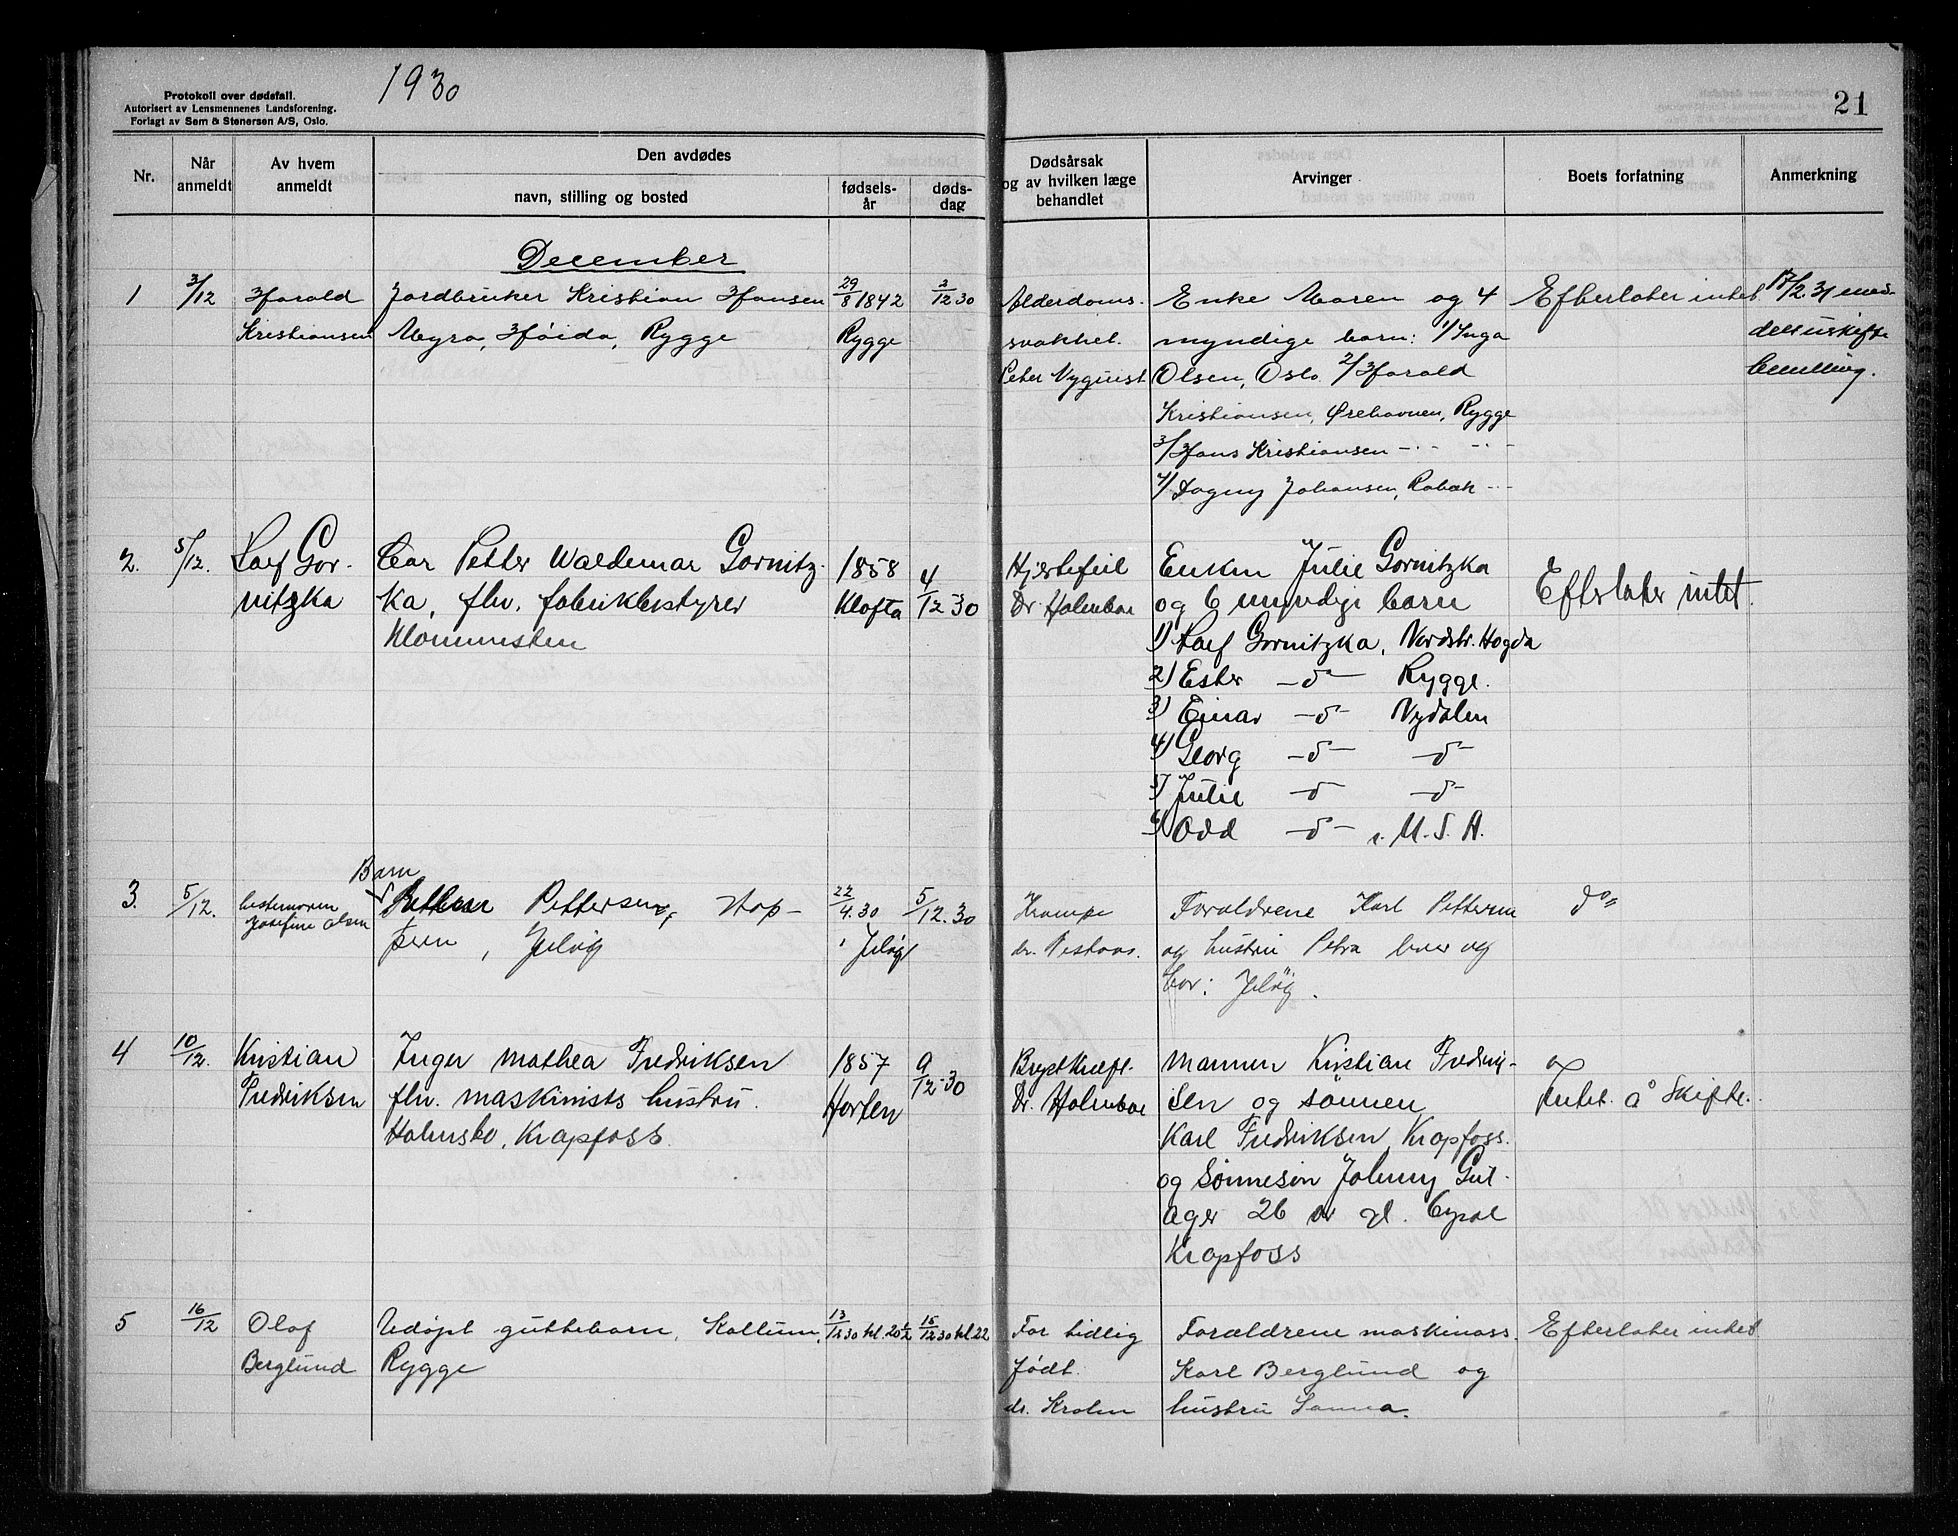 1930
Protokoll over dødsfall.
Autorisert av Lensmennenes Landsforening.
Forlagt av Sem & Stenersen A/S, Oslo.
21
Nr.
Når anmeldt
Av hvem anmeldt
Den avdødes
navn, stilling og bosted
fødsels-år
døds-dag
Dødsårsak og av hvilken læge behandlet
Arvinger
Boets forfatning
Anmerkning
December
1
3/12
Harald
Kristiansen
Jordbruker Kristian Hansen
Myra, Høida, Rygge
29/8 1842
Rygge
2/12 30
Alderdoms-
svakhet.
Peter Nyquist
Enke Maren og 4
myndige barn: 1/ Inga
Olsen, Oslo 2/ Harald
Kristiansen, Ørehavnen, Rygge
3/ Hans Kristiansen -"- -"-
4/ Dagny Johansen, Rabæk -"-
Efterlater intet
17/2 31 med-
delt uskifte
bevilling.
2.
5/12.
Leif Gor-
nitzka
Petter Waldemar Gornitz-
ka, fhv. fabrikbestyrer
1858
Kløfta
4/12-30
Hjertefeil
Dr. Holmboe
Enken Julie Gornitzka
og 6 myndige barn
1) Leif Gornitzka, Nordstr. Høgda
2) Ester -d- Rygge.
3) Einar -d- Nydalen
4) Georg -d- -d-
5) Julie -d- -d-
6) Odd -d- i U.S.A.
Efterlater intet.
3.
5/12.
bestemoren
Josefine Olsen
Barn
Pettersen,
Jeløy
22/4.30
Jeløy
5/12.30
Krampe
Forældrene Karl Pettersen
og hustru Petra lever og
bor: Jeløy.
do
4
10/12.
Kristian
Fredriksen
Inger Mathea Fredriksen
fhv. maskinists hustru.
Holmsbo, Krapfoss.
1857
Horten
9/12-30
Brystkræft.
Dr. Holmboe
Mannen Kristian Fredrik-
sen og sønnen
Karl Fredriksen, Krapfoss.
og sønnesøn Johnny Gut-
ager 26 år gl.
Krapfoss
Intet å skifte.
5
16/12
Olaf
Berglund
Udøpt guttebarn, Kallum,
Rygge
13/12 30 kl. 20 1/2
15/12 30 kl. 22
For tidlig
født.
dr. Krohn
Forældrene maskinass.
Karl Berglund og
hustru Sanna.
Efterlater intet